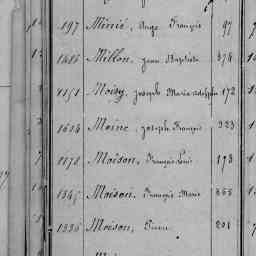 197 Minié, Ange François 97
1485 Millon, Jean Baptiste 378
1151 Moisy, Joseph Marie Adolphe 172
1604 Moine, Joseph François 323
1178 Moison, François Louis 173
1345 Moison, François Marie 355
1336 Moison, Pierre 201